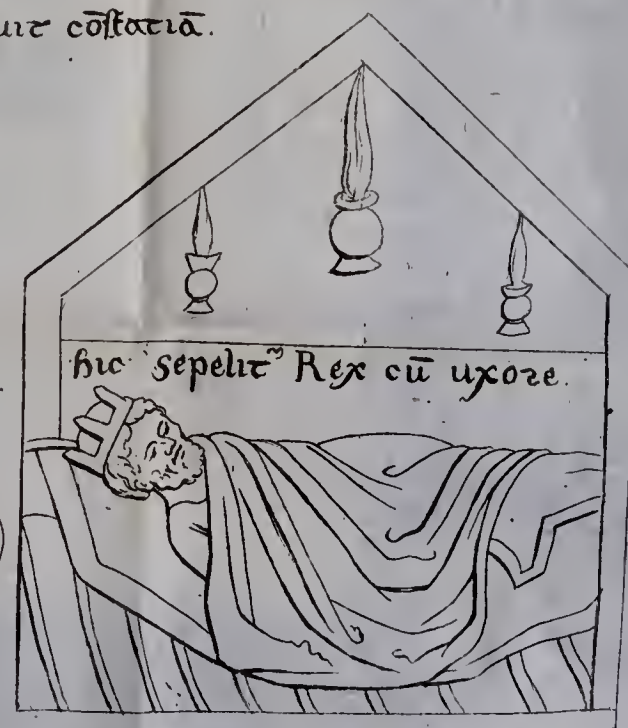 uit cōstatiā.
hic sepelit˜ Rex cū uxore.